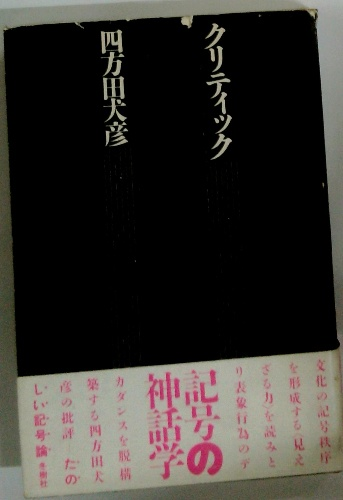 クリティック
四方田犬彦
文化の記号秩序
を形成する〈見え
ざる力〉を読みと
り表象行為のデ
記号の
神話学
カダンスを脱構
築する四方田犬
彦の批評——たの
しい記号論 冬樹社